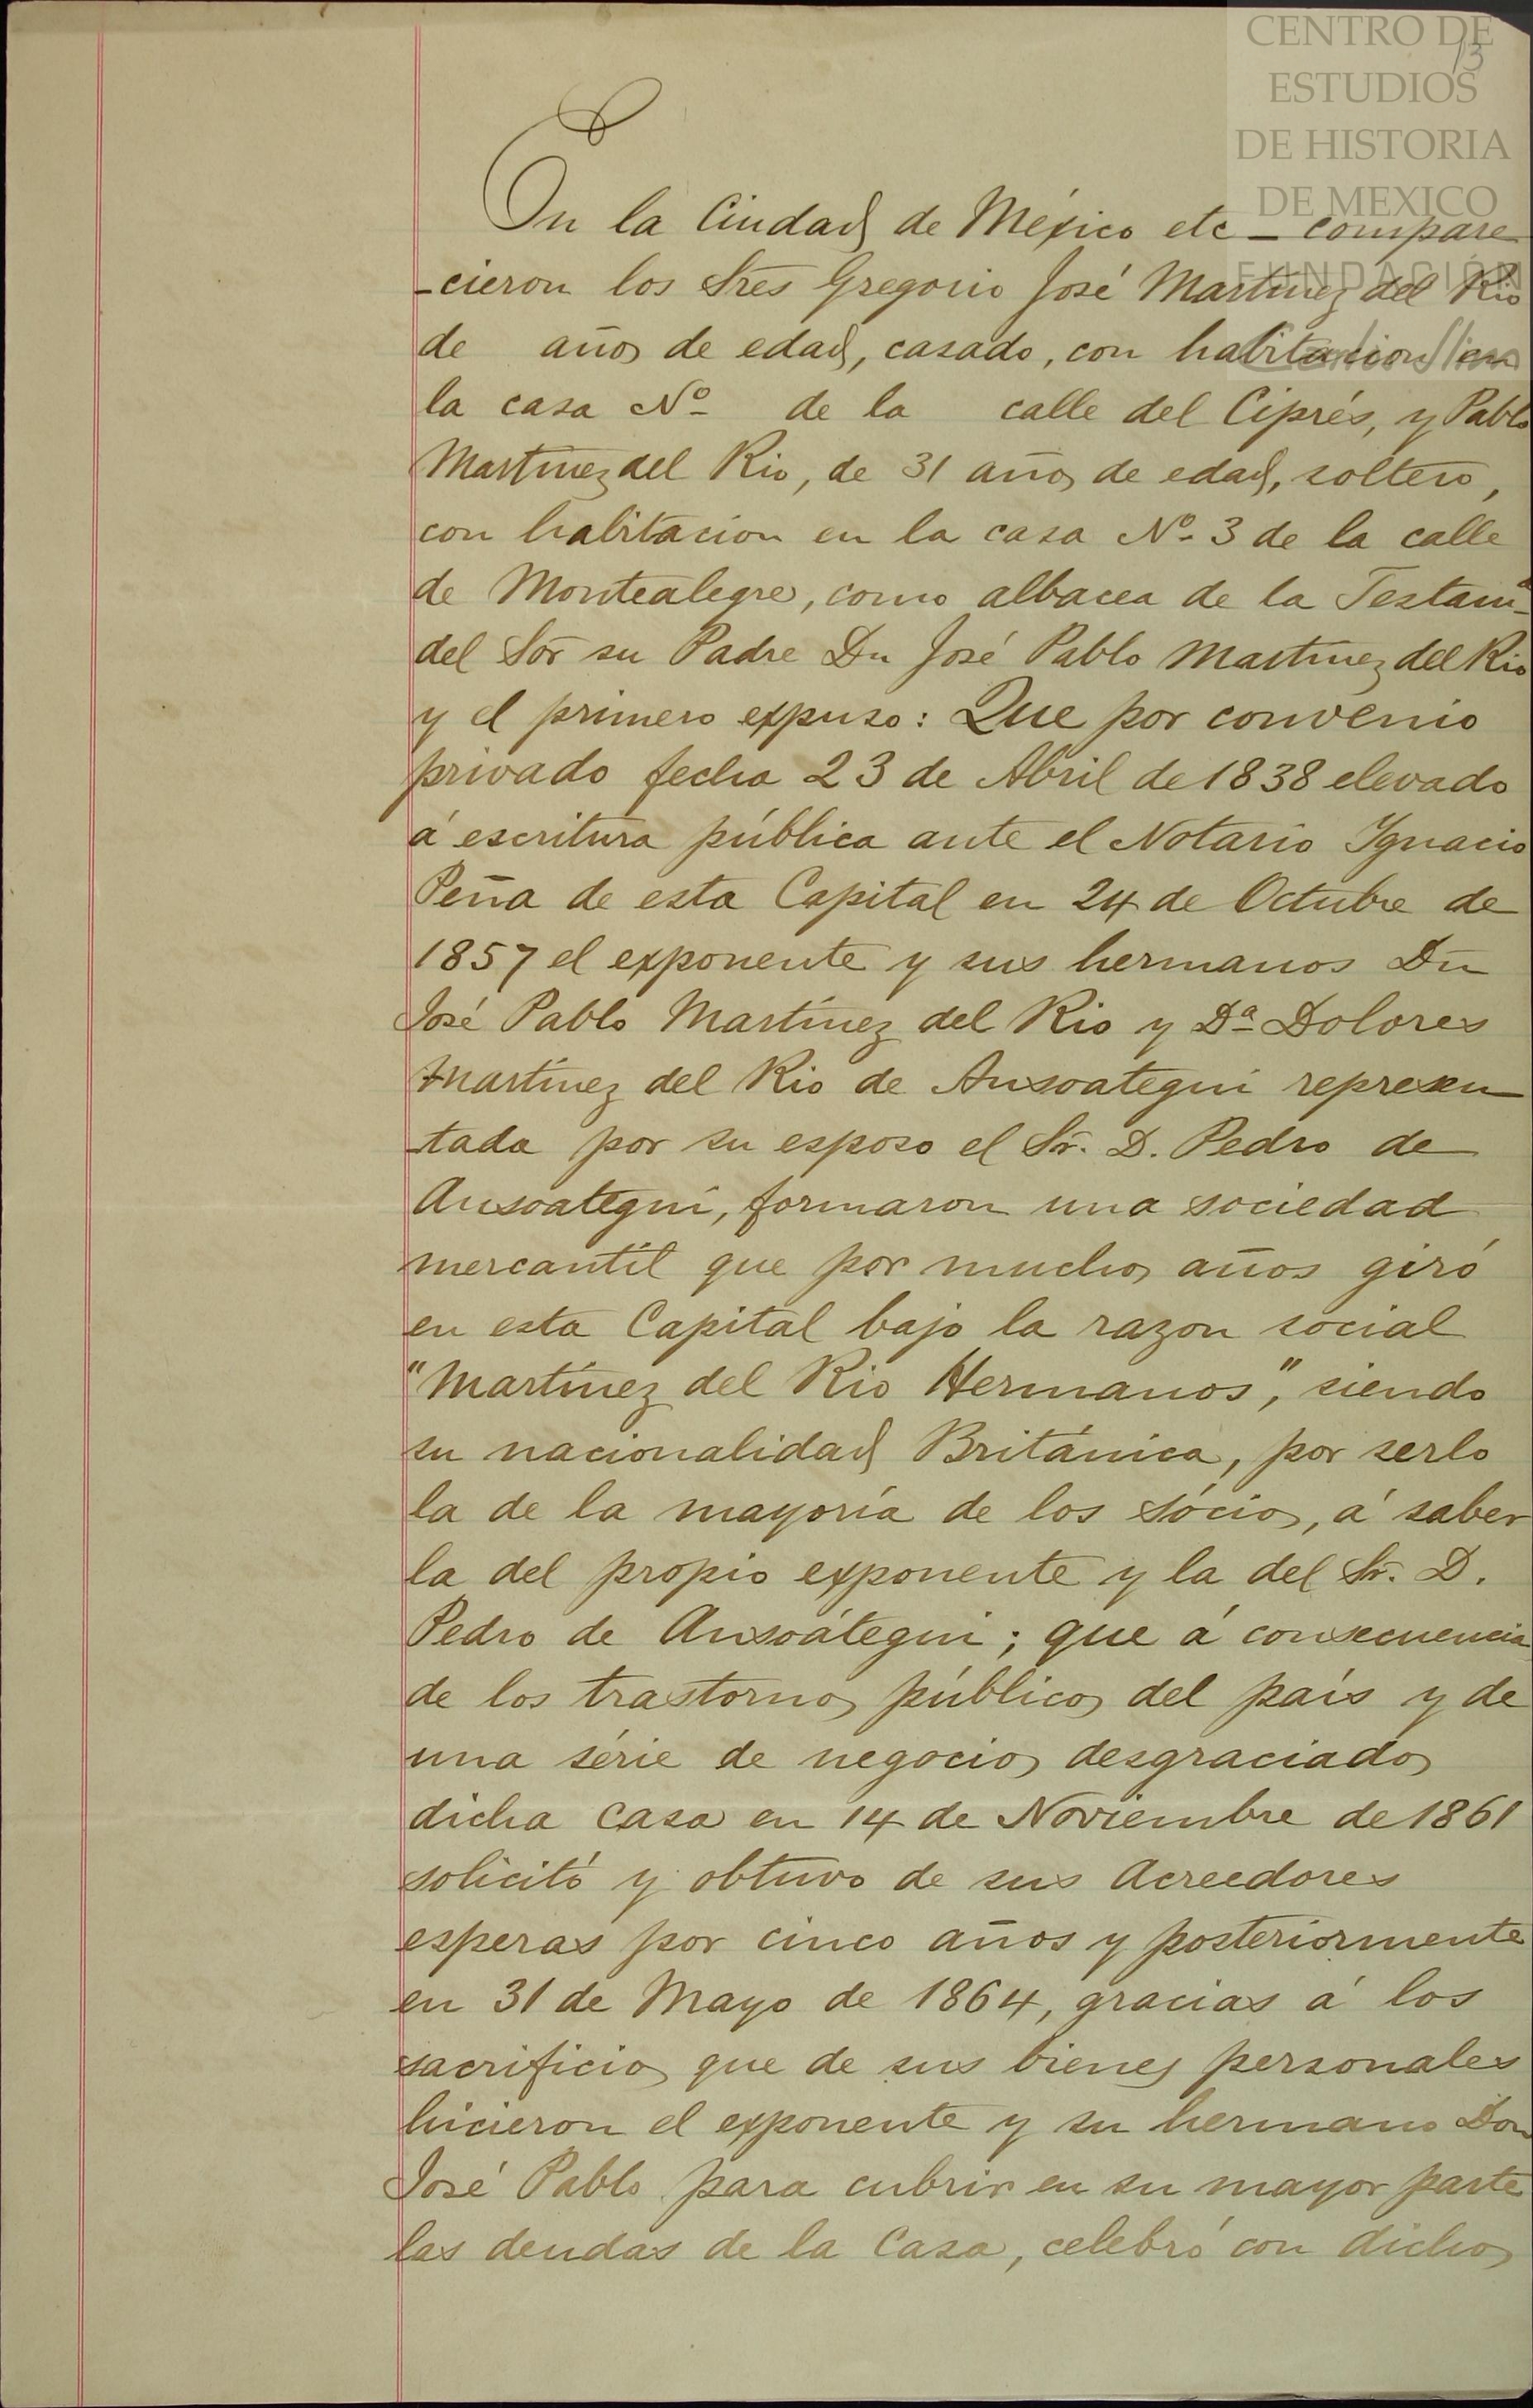 CENTRO DE
ESTUDIOS
DE HISTORIA
DE MEXICO
FUNDACIÓN
Carlos Slim
13
En la Ciudad de México etc – compare
-cieron los Sres Gregorio José Martinez del Rio
de años de edad, casado, con habitacion en
la casa Nº de la calle del Ciprés, y Pablo
Martinez del Rio, de 31 años de edad, soltero,
con habitacion en la casa Nº 3 de la calle
de Montealegre, como albacea de la Testamª
del Sor su Padre Dn José Pablo Martinez del Rio
y el primero expuso: Que por convenio
privado fecha 23 de Abril de 1838 elevado
á escritura pública ante el Notario Ygnacio
Peña de esta Capital en 24 de Octubre de
1857 el exponente y sus hermanos Dn
José Pablo Martínez del Rio y Dª Dolores
Martínez del Rio de Ansoategui represen
tada por su esposo el Sr. D. Pedro de
Ansoategui, formaron una sociedad
mercantil que por muchos años giró
en esta Capital bajo la razon social
"Martínez del Rio Hermanos", siendo
su nacionalidad Británica, por serlo
la de la mayoría de los sócios, á saber
la del propio exponente y la del Sr. D.
Pedro de Ansoátegui; que á consecuencia
de los trastornos públicos del país y de
una série de negocios desgraciados
dicha Casa en 14 de Noviembre de 1861
solicitó y obtuvo de sus Acreedores
esperas por cinco años y posteriormente
en 31 de Mayo de 1864, gracias á los
sacrificios que de sus bienes personales
hicieron el exponente y su hermano Don
José Pablo para cubrir en su mayor parte
las deudas de la Casa, celebró con dichos